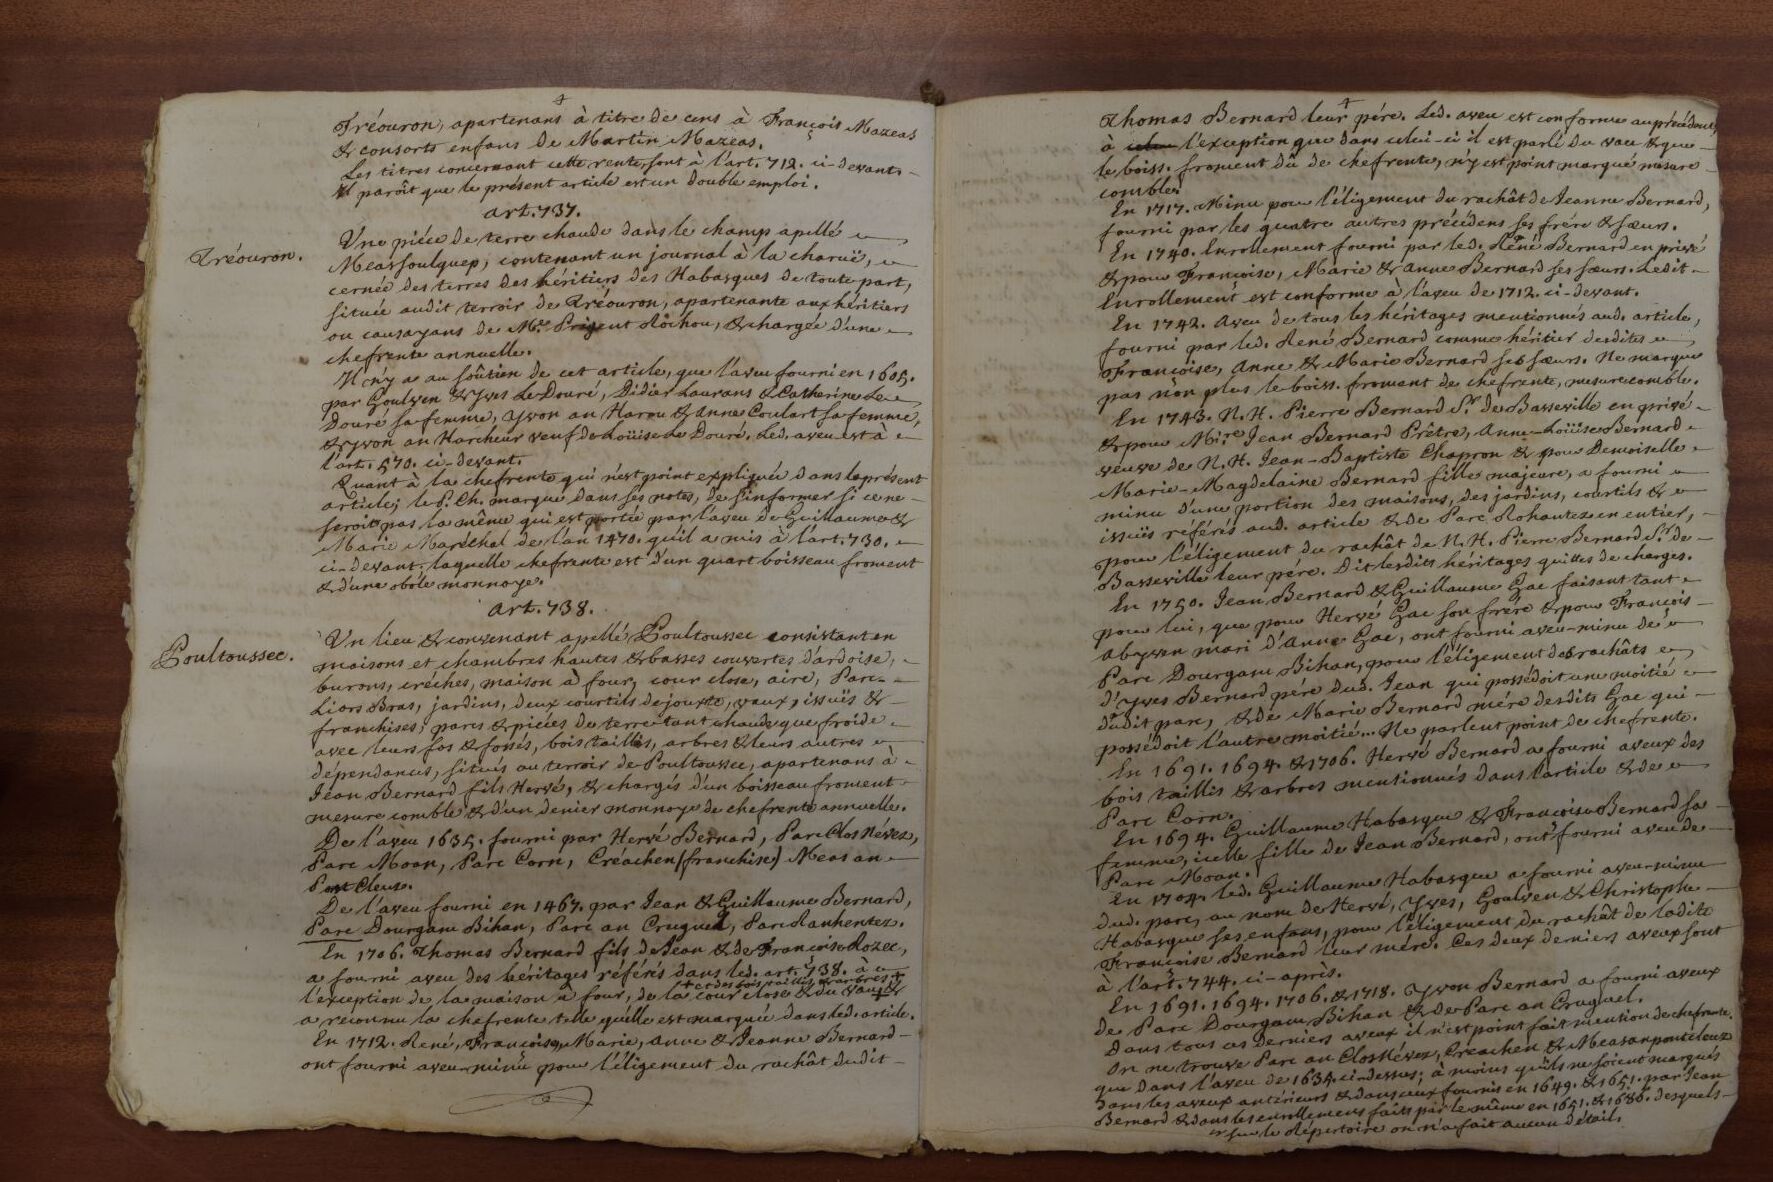 Tréouron, apartenans à titre de cens à François Mazeas
& consorts enfans de Martin Mazeas.
Les titres concernant cette rente, sont à l'art. 712. ci-devant.
Il paroît que le présent article est un double emploi.
art. 737.
Tréouron.
Une piéce de terre chaude dans le champ apellé
Meassoulquep, contenant un journal à la charuë,
cernée des terres des héritiers des Habasques de toute part,
située audit terroir de Tréouron, apartenante aux héritiers
ou causayans de Me. Prigent Rochou, & chargée d'une
chefrente annuelle.
Il n'y a au soûtien de cet article, que l'aveu fourni en 1605.
par Goulven & Yves Le Douré, Didier Laurans & Catherine Le
Douré sa femme, Yvon an Harou & Anne Coulart sa femme,
& Yvon an Marcheur veuf de Loüise Le Douré. Led. aveu est à
l'art. 570. ci-devant.
Quant à la chefrente qui n'est point expliquée dans le présent
article; le P. Ch. marque dans ses notes, de s'informer si ce ne
seroit pas la même qui est portée par l'aveu de Guillaume &
Marie Maréchal de l'an 1470. qu'il a mis à l'art. 730.
ci-devant; laquelle chefrente est d'un quart boisseau froment
& d'une obole monnoye.
art. 738.
Poultoussec.
Un lieu & convenant apellé Poultoussec consistant en
maisons et chambres hautes & basses couvertes d'ardoise,
burons, créches, maison à four, cour close, aire, Parc-
Liors Bras, jardins, deux courtils dejouxte, vaux, issuës &
franchises, parcs & piéces de terre tant chaude que froide
avec leurs fos & fossés, bois taillis, arbres & leurs autres
dépendances, situés au terroir de Poultoussec, apartenans à
Jean Bernard fils Hervé, & chargés d'un boisseau froment
mesure comble & d'un denier monnoye de chefrente annuelle.
De l'aveu 1635. fourni par Hervé Bernard, Parc Clos Névez,
Parc Moan, Parc Corn, Créachen (franchise) Meas an
Pont Cleuz.
De l'aveu fourni en 1467. par Jean & Guillaume Bernard,
Parc Dourgam Bihan, Parc an Cruguel, Parc Ranhentez.
En 1706. Thomas Bernard fils de Jean & de Françoise Rozec,
a fourni aveu des héritages référés dans led. art. 738. à
+ et des bois taillis & arbres +
l'exception de la maison à four, de la cour close & du vau, &
a reconnu la chefrente telle qu'elle est marquée dans led. article.
En 1712. René, Françoise, Marie, Anne & Jeanne Bernard
ont fourni aveu-minu pour l'éligement du rachât dudit
Thomas Bernard leur pére. Led. aveu est conforme au précédent,
à l'exception que dans celui-ci il est parlé du vau & que
le boiss. froment dû de chefrente, n'y est point marqué mesure
comble.
En 1717. Minu pour l'éligement du rachât de Jeanne Bernard,
fourni par les quatre autres précédens ses frére & sœurs.
En 1740. Enrollement fourni par led. René Bernard en privé
& pour Françoise, Marie & Anne Bernard ses sœurs. Ledit
Enrollement est conforme à l'aveu de 1712. ci-devant.
En 1742. Aveu de tous les héritages mentionnés aud. article,
fourni par led. René Bernard comme héritier desdites
Françoise, Anne & Marie Bernard ses sœurs. Ne marque
pas non plus le boiss. fromant de chefrente, mesure comble.
En 1743. N. H. Pierre Bernard Sr. de Basseville en privé
& pour Mire. Jean Bernard Prêtre, Anne-Loüise Bernard
veuve de N. H. Jean-Baptiste Chapron & pour Demoiselle
Marie-Magdelaine Bernard fille majeure, a fourni
minu d'une portion des maisons, des jardins, courtils &
issuës référés aud. article & de Parc Rohantez en entier,
pour l'éligement du rachât de N. H. Pierre Bernard Sr. de
Basseville leur pére. Dit lesdits héritages quittes de charges.
En 1750. Jean Bernard & Guillaume Gac faisant tant
pour lui, que pour Hervé Gac son frére & pour François
Abyven mari d'Anne Gac, ont fourni aveu-minu de
Parc Dourgam Bihan, pour l'éligement des rachâts
d'Yves Bernard pére dud. Jean qui possédoit une moitié
dudit parc, & de Marie Bernard mére desdits Gac qui
possédoit l'autre moitié... Ne parlent point de chefrente.
En 1691. 1694. & 1706. Hervé Bernard a fourni aveux des
bois taillis & arbres mentionnés dans l'article & de
Parc Corn.
En 1694. Guillaume Habasque & Françoise Bernard sa
femme, icelle fille de Jean Bernard, ont fourni aveu de
Parc Moan.
En 1704. led. Guillaume Habasque a fourni aveu-minu
dud. parc, au nom de Hervé, Yves, Goulven & Christophe
Habasque ses enfans, pour l'éligement du rachât de ladite
Françoise Bernard leur mére. Ces deux derniers aveux sont
à l'art. 744. ci-après.
En 1691. 1694. 1706. & 1718. Yvon Bernard a fourni aveux
de Parc Dourgam Bihan & de Parc an Cruguel.
Dans tous ces derniers aveux il n'est point fait mention de chefrente.
On ne trouve Parc an Clos Névez, Créachen & Meas an pont cleuz
que dans l'aveu de 1635. ci-dessus; à moins qu'ils ne soient marqués
dans les aveux antérieurs & dans ceux fournis en 1649. & 1651. par Jean
Bernard & dans les enrollemens faits par le même en 1651. & 1686. desquels
sur le Répertoire on n'a fait aucun détail.